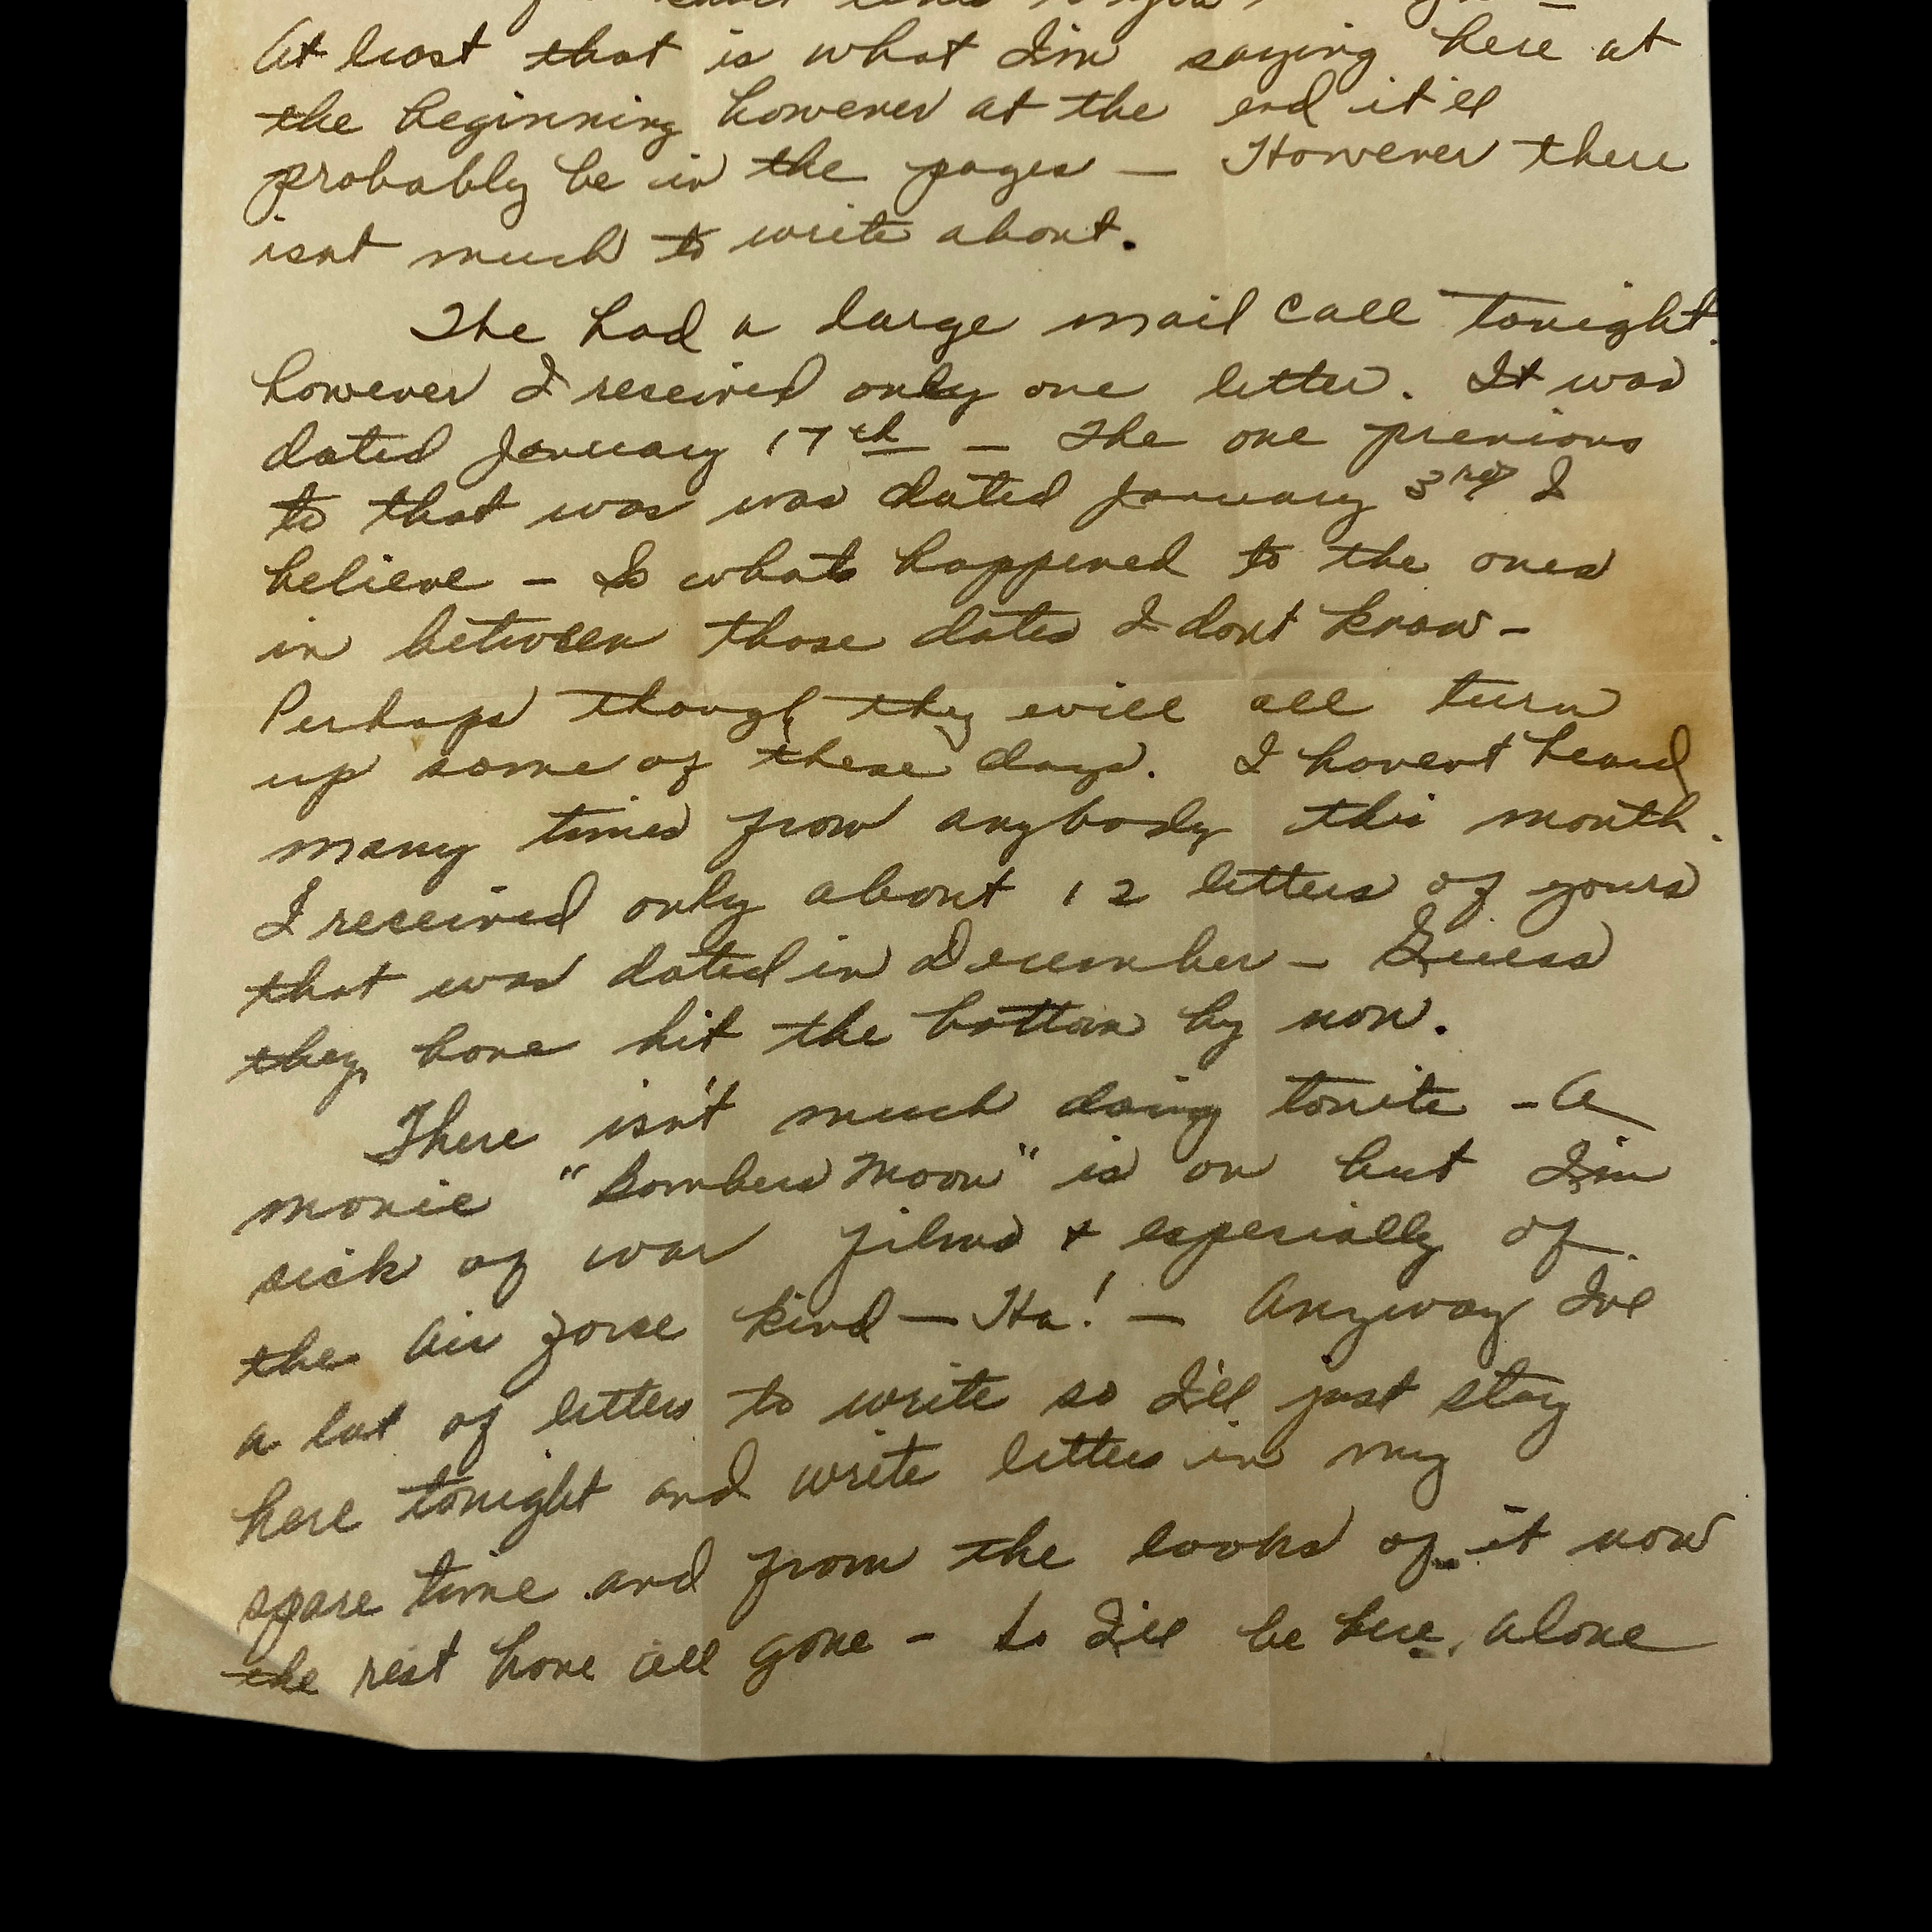 short lines to you
At least that is what I'm saying here at
the beginning however at the end it'll
probably be in the pages — However there
isnt much to write about.
The had a large mail call tonight.
however I received only one letter. It was
dated January 17th — The one previous
to that was was dated January 3rd I
believe — So whats happened to the ones
in between those dates I dont know —
Perhaps though they will all turn
up some of these days. I havent heard
many times from anybody this month.
I received only about 12 letters of yours
that was dated in December — Guess
they have hit the bottom by now.
There isn't much doing tonite — A
movie "Bombers Moon" is on but I'm
sick of war films + especially of
the Air force kind — Ha! — Anyway I've
a lot of letters to write so I'll just stay
here tonight and write letters in my
spare time and from the looks of it now
the rest have all gone — so I'll be here, alone